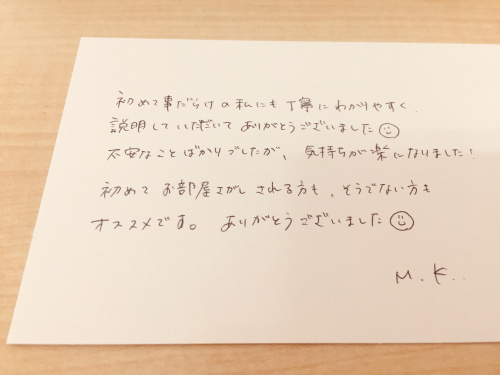 初めて事だらけの私にも丁寧にわかりやすく
説明していただいてありがとうございました☺
不安なことばかりでしたが、気持ちが楽になりました!
初めてお部屋さがしされる方も、そうでない方も
オススメです。ありがとうございました☺
M.K..